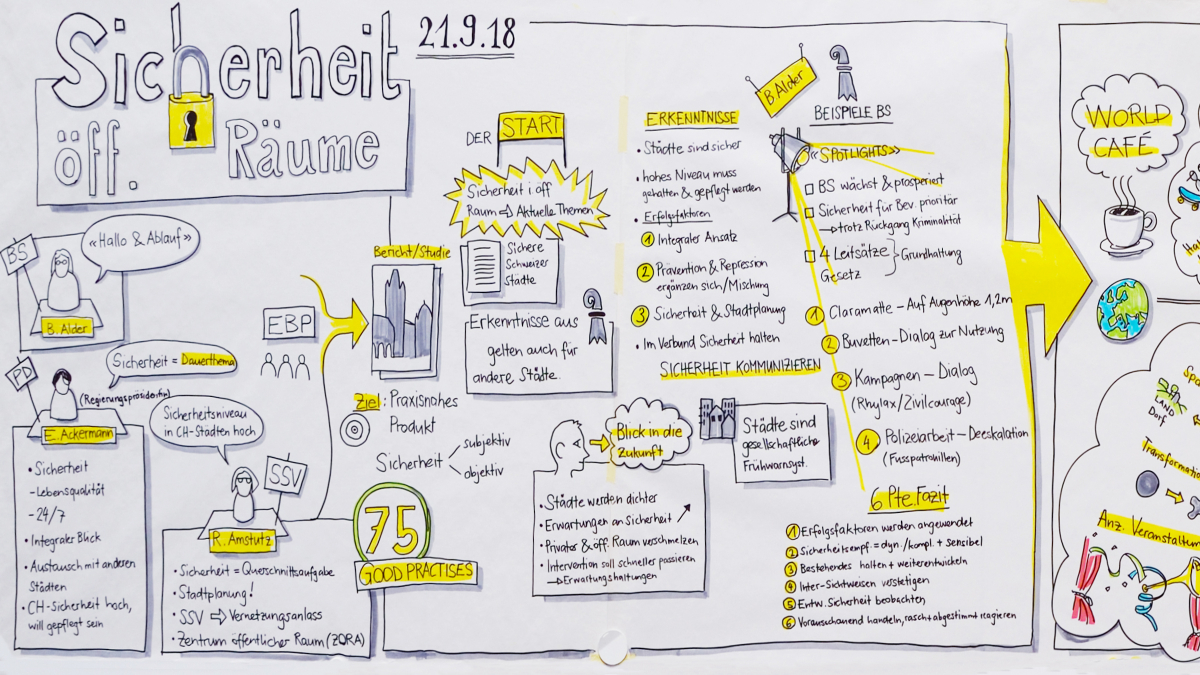 Sicherheit
öff. Räume
21.9.18
BS
«Hallo & Ablauf»
B. Alder
PD
Sicherheit = Dauerthema
(Regierungspräsidentin)
E. Ackermann
• Sicherheit
- Lebensqualität
- 24/7
• Integraler Blick
• Austausch mit anderen
Städten
• CH-Sicherheit hoch,
will gepflegt sein
Sicherheitsniveau
in CH-Städten hoch
SSV
R. Amstutz
• Sicherheit = Querschnittsaufgabe
• Stadtplanung!
• SSV ⇨ Vernetzungsanlass
• Zentrum öffentlicher Raum (ZORA)
EBP
Bericht/Studie
Ziel: Praxisnahes
Produkt
Sicherheit
subjektiv
objektiv
75
GOOD PRACTISES
DER START
Sicherheit i öff
Raum ⇨ Aktuelle Themen
Sichere
Schweizer
Städte
Erkenntnisse aus
gelten auch für
andere Städte.
Blick in die
Zukunft
• Städte werden dichter
• Erwartungen an Sicherheit ↗
• Privater & öff. Raum verschmelzen
• Intervention soll schneller passieren
→ Erwartungshaltungen
ERKENNTNISSE
• Städte sind sicher
• hohes Niveau muss
gehalten & gepflegt werden
• Erfolgsfaktoren
1 Integraler Ansatz
2 Prävention & Repression
ergänzen sich/Mischung
3 Sicherheit & Stadtplanung
• Im Verbund Sicherheit halten
SICHERHEIT KOMMUNIZIEREN
Städte sind
gesellschaftliche
Frühwarnsyst.
B. Alder
BEISPIELE BS
«SPOTLIGHTS»
□ BS wächst & prosperiert
□ Sicherheit für Bev. prioritär
→ trotz Rückgang Kriminalität
□ 4 Leitsätze } Grundhaltung
Gesetz
1 Claramatte – Auf Augenhöhe 1,2m
2 Buvetten – Dialog zur Nutzung
3 Kampagnen – Dialog
(Rhylax/Zivilcourage)
4 Polizeiarbeit – Deeskalation
(Fusspatrouillen)
6 Pte. Fazit
1 Erfolgsfaktoren werden angewendet
2 Sicherheitsempf. = dyn./kompl. + sensibel
3 Bestehendes halten + weiterentwickeln
4 Inter-Sichtweisen verstetigen
5 Entw. Sicherheit beobachten
6 Vorausschauend handeln, rasch + abgestimmt reagieren
WORLD
CAFÉ
LAND
Dorf
Transformation
Anz. Veranstaltun